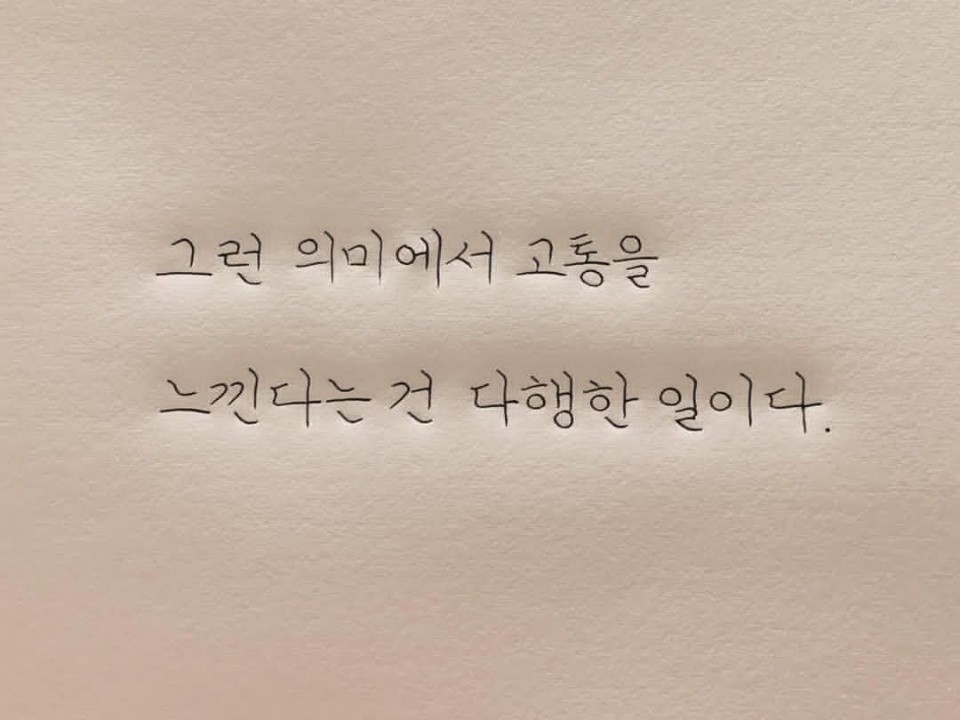 그런 의미에서 고통을
느낀다는 건 다행한 일이다.